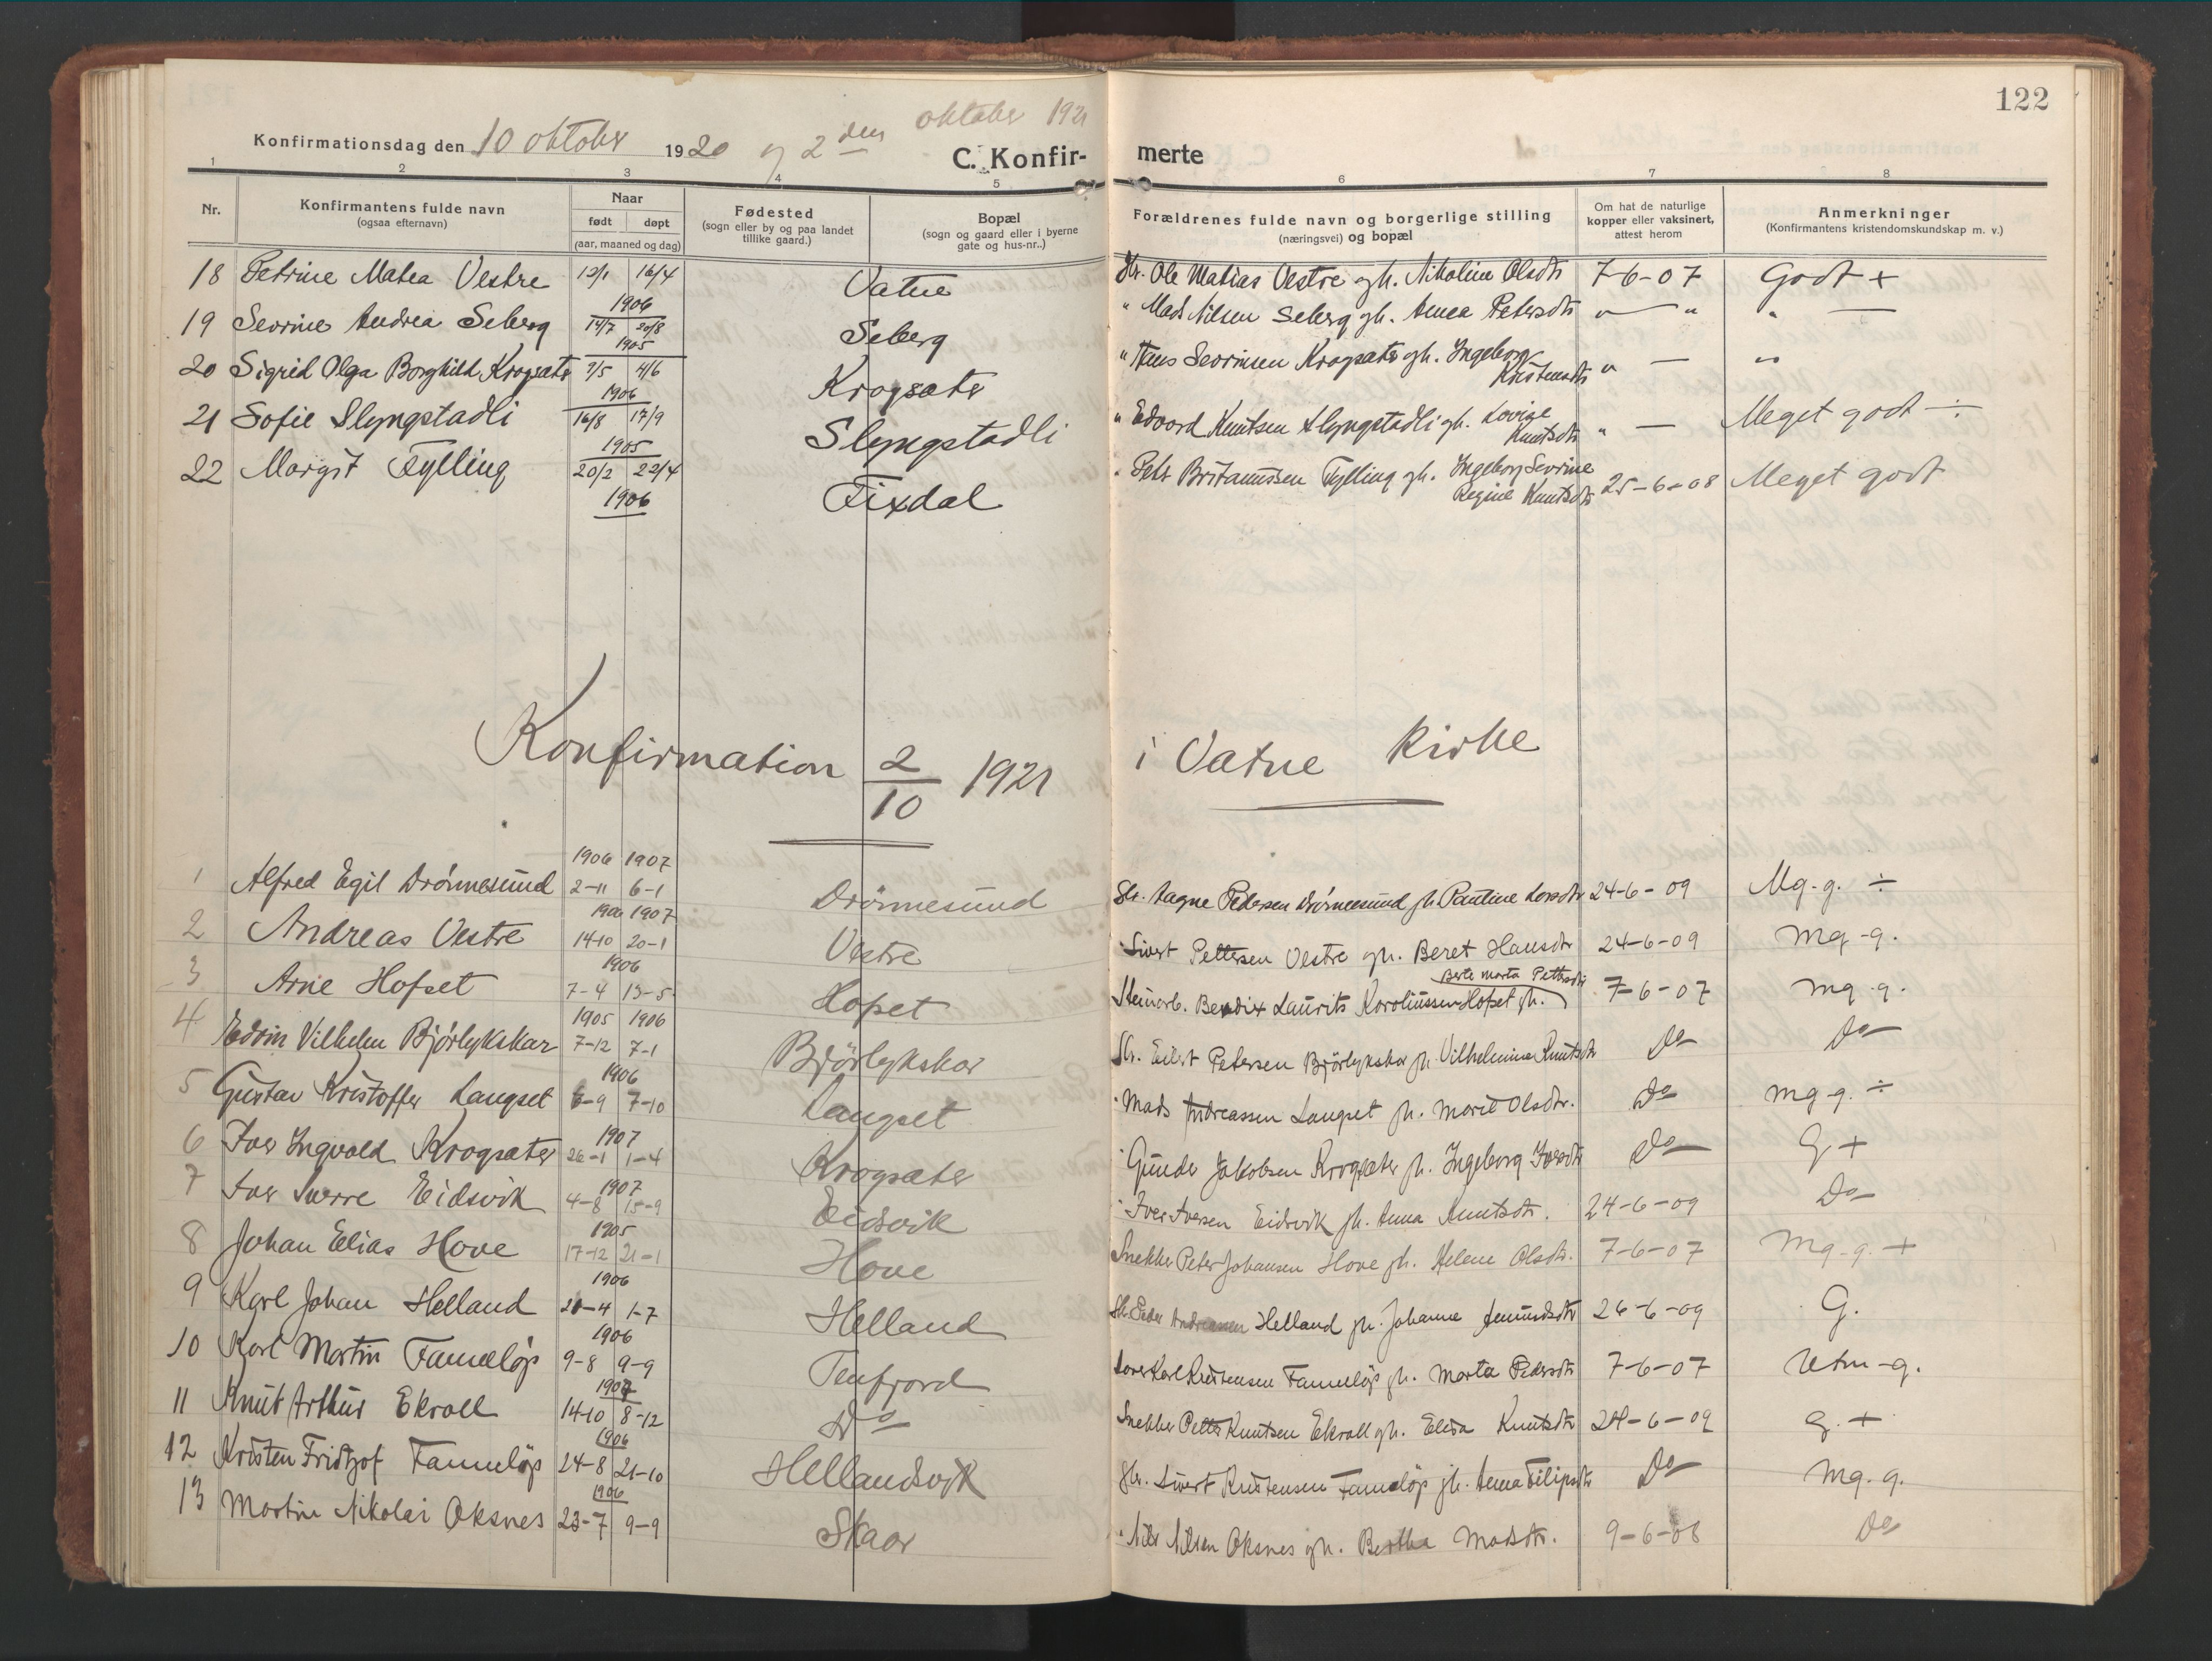 122
Konfirmationsdag den 10 oktober 1920 og 2den oktober 1921
C. Konfirmerte
1 2 3 4 5 6 7 8
Nr.
Konfirmantens fulde navn
(ogsaa efternavn)
Naar
født døpt
(aar, maaned og dag)
Fødested
(sogn eller by og paa landet
tillike gaard.)
Bopæl
(sogn og gaard eller i byerne
gate og hus-nr..)
Forældrenes fulde navn og borgerlige stilling
(næringsvei) og bopæl
Om hat de naturlige
kopper eller vaksinert,
attest herom
Anmerkninger
(Konfirmantens kristendomskundskap m. v.)
18 Petrine Matea Vestre 12/1 16/4 1906 Vatne Gbr. Ole Matias Vestre gh. Nikoline Olsdtr 7-6-07 Godt +
19 Sevrine Andrea Seberg 14/7 20/8 1905 Seberg " Mads Nilsen Seberg gh. Anna Petersdtr " — " " —
20 Sigrid Olga Borghild Krogsæter 7/5 4/6 1906 Krogsæter " Hans Sevrinsen Krogsæter gh. Ingeborg
Kristensdtr " — "
21 Sofie Slyngstadli 16/8 17/9 1905 Slyngstadli " Edvard Knutsen Slyngstadli gh. Lovise
Knutsdtr " — Meget godt ÷
22 Margit Fylling 20/2 22/4 1906 Fixdal " Peter Fylling gh. Ingeborg Sevrine
Regine Knutsdtr 25-6-08 Meget godt
Konfirmation 2/10 1921 i Vatne Kirke
1 Alfred Egil Drönnesund 1906 1907 2-11 6-1 Drönnesund Gbr. Aagne Pedersen Drönnesund gh. Pauline Larsdtr 24-6-09 Mg-g. ÷
2 Andreas Vestre 1906 1907 14-10 20-1 Vestre " Sivert Pettersen Vestre gh. Beret Hansdtr 24-6-09 mg-g.
3 Arne Hofset 1906 7-4 13-5 Hofset Stenarb. Bendix Laurits Karoliussen Hofset gh. Berte Marta Pettersdtr 7-6-07 mg-g.
4 Edvin Vilhelm Bjørlykskar 1905 1906 7-12 7-1 Bjørlykskar Gbr. Eilert Petersen Bjørlykskar gh. Vilhelmina Knutsdtr Do Do
5 Gustav Kristoffer Langset 1906 6-9 7-10 Langset " Mads Andreassen Langset gh. Marie Olsdtr. Do mg-g. ÷
6 Iver Ingvald Krogsæter 1907 26-1 1-4 Krogsæter " Gunder Jakobsen Krogsæter gh. Ingeborg Iversdtr Do G +
7 Iver Sverre Eidsvik 1907 4-8 15-9 Eidsvik " Iver Iversen Eidsvik gh. Anna Knutsdtr. 24-6-09 Do
8 Johan Elias Hove 1905 17-12 21-1 Hove Snekker Peter Johansen Hove gh. Helene Olsdtr. 7-6-07 Mg-g. +
9 Karl Johan Helland 1906 20-4 1-7 Helland Gbr. Peder Andreassen Helland gh. Johanne Amundsdtr 26-6-09 G.
10 Karl Martin Fameløp 1906 9-8 9-9 Tenfjord Karl Kristensen Fameløp gh. Marta Pedersdtr 7-6-07 Utm-g.
11 Knut Arthur Ekroll 1907 14-10 8-12 Do Snekker Petter Knutsen Ekroll gh. Elisa Knutsdtr 24-6-09 g. +
12 Kristen Fridtjof Fameløp 1906 24-8 21-10 Hellandsvik Gbr. Sivert Kristensen Fameløp gh. Anna Filipsdtr Do Mg.g.
13 Martin Nikolai Oksnes 1906 23-7 9-9 Skaar " Nils Nilsen Oksnes gh. Bertha Madsdtr. 9-6-08 Do